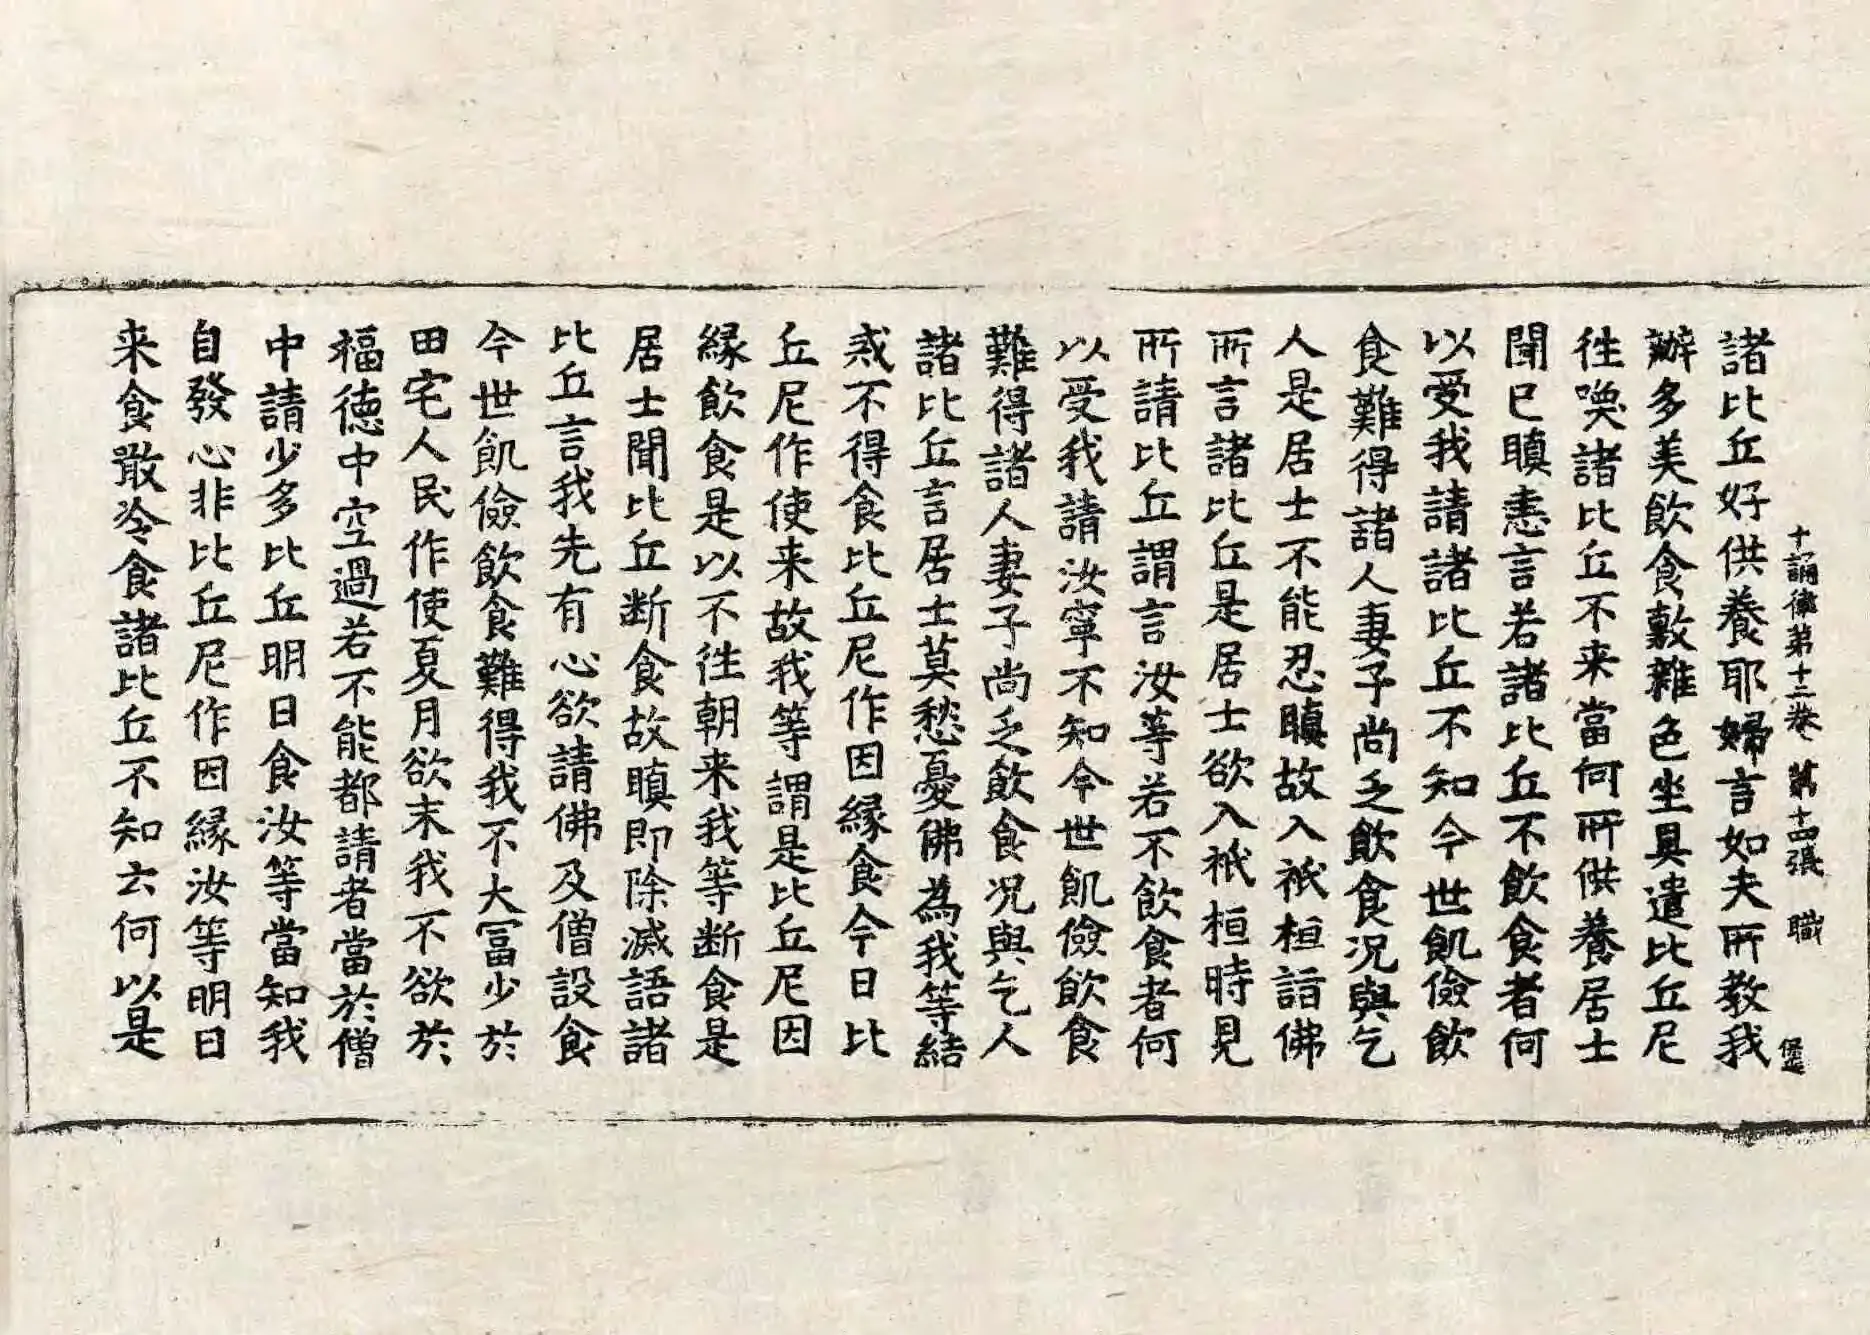 十誦律第十二卷 第十四張 職
諸比丘好供養耶婦言如夫所教我
辦多美飲食敷雜色坐具遣比丘尼
徃喚諸比丘不来當何所供養居士
聞已瞋恚言若諸比丘不飲食者何
以受我請諸比丘不知今世飢儉飲
食難得諸人妻子尚乏飲食况與乞
人是居士不能忍瞋故入祇桓詣佛
所言諸比丘是居士欲入祇桓時見
所請比丘謂言汝等若不飲食者何
以受我請汝寧不知今世飢儉飲食
難得諸人妻子尚乏飲食况與乞人
諸比丘言居士莫愁憂佛為我等結
戒不得食比丘尼作因緣食今日比
丘尼作使来故我等謂是比丘尼因
緣飲食是以不徃朝来我等断食是
居士聞比丘断食故瞋即除滅語諸
比丘言我先有心欲請佛及僧設食
今世飢儉飲食難得我不大冨少於
田宅人民作使夏月欲末我不欲於
福徳中空過若不能都請者當於僧
中請少多比丘明日食汝等當知我
自發心非比丘尼作因緣汝等明日
来食散冷食諸比丘不知云何以是